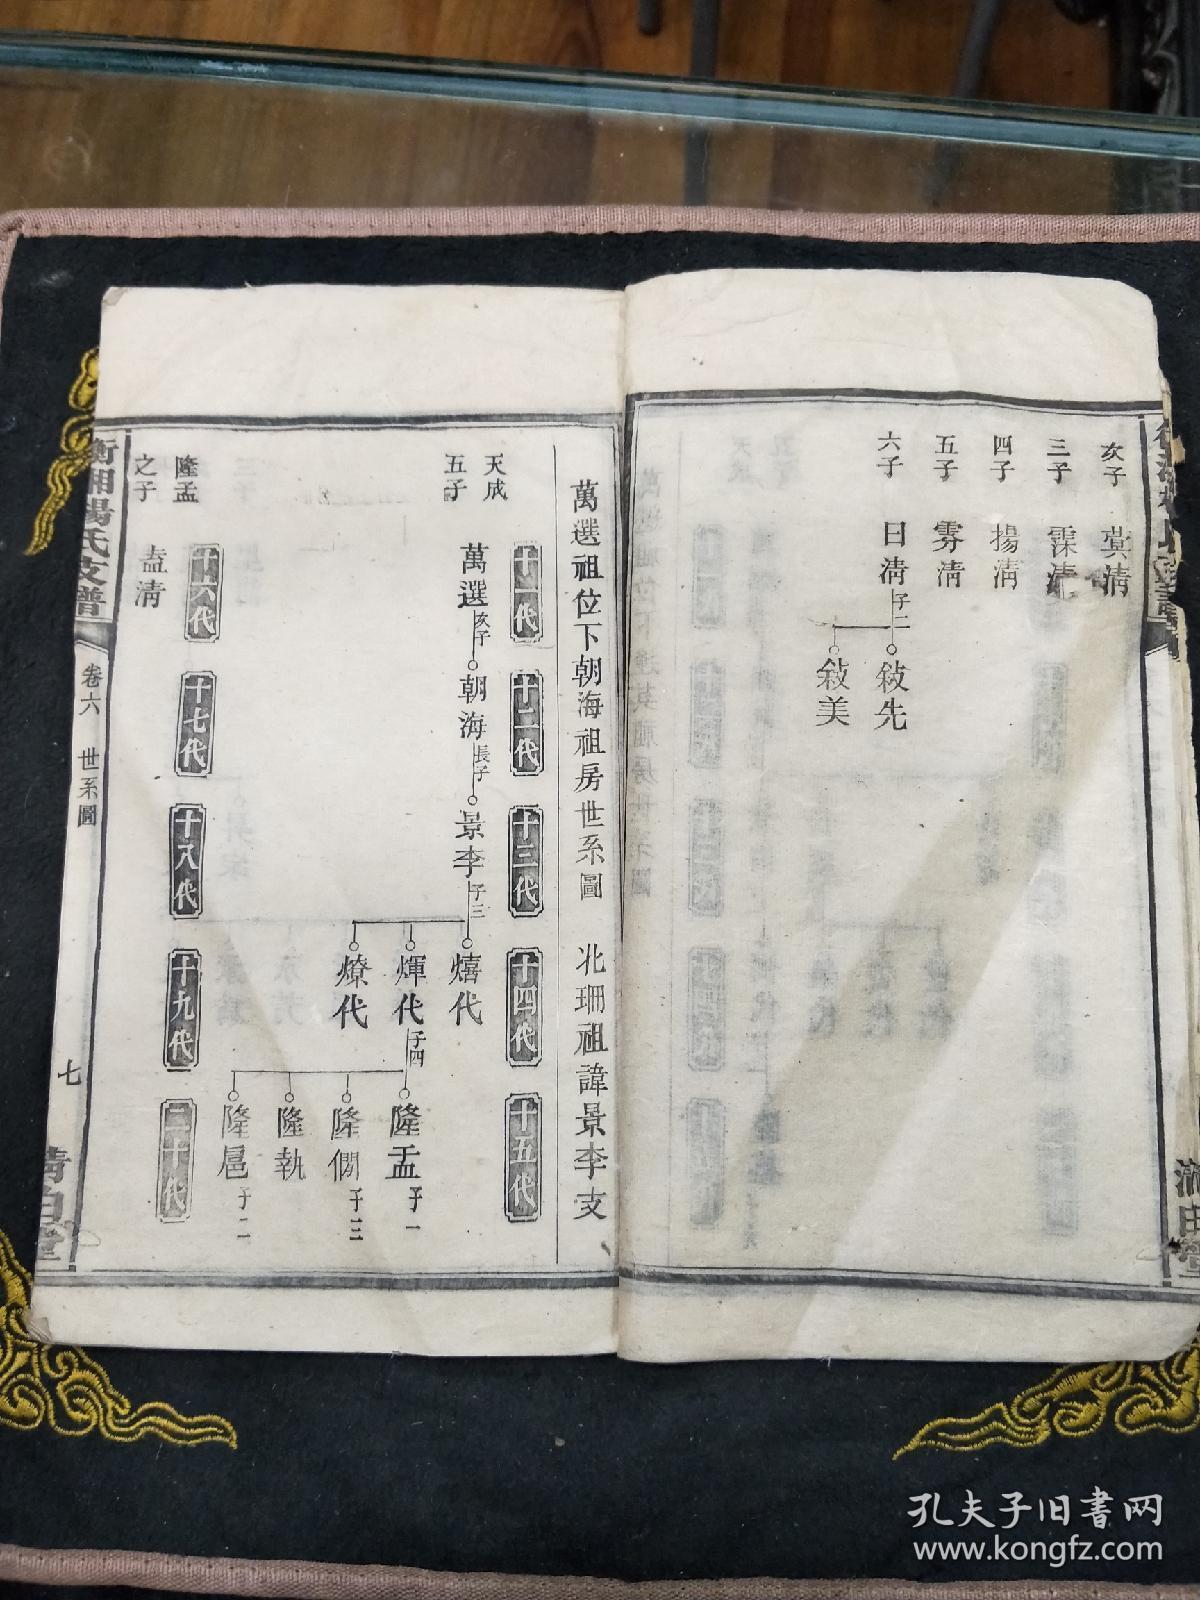 次子 蓂淸
三子 霂淸
四子 揚淸
五子 雰淸
六子 日淸 子二
敍先
敍美
萬選祖位下朝海祖房世系圖 兆珊祖諱景李支
十一代 十二代 十三代 十四代 十五代
天成
五子
萬選 次子 朝海 長子 景李 子三
熺代
煇代 子四
燎代
隆孟 子一
隆僩 子三
隆執
隆扈 子二
十六代 十七代 十八代 十九代 二十代
隆孟
之子
盍淸
衡湘楊氏支譜 卷六 世系圖 七 淸白堂
孔夫子旧书网
www.kongfz.com